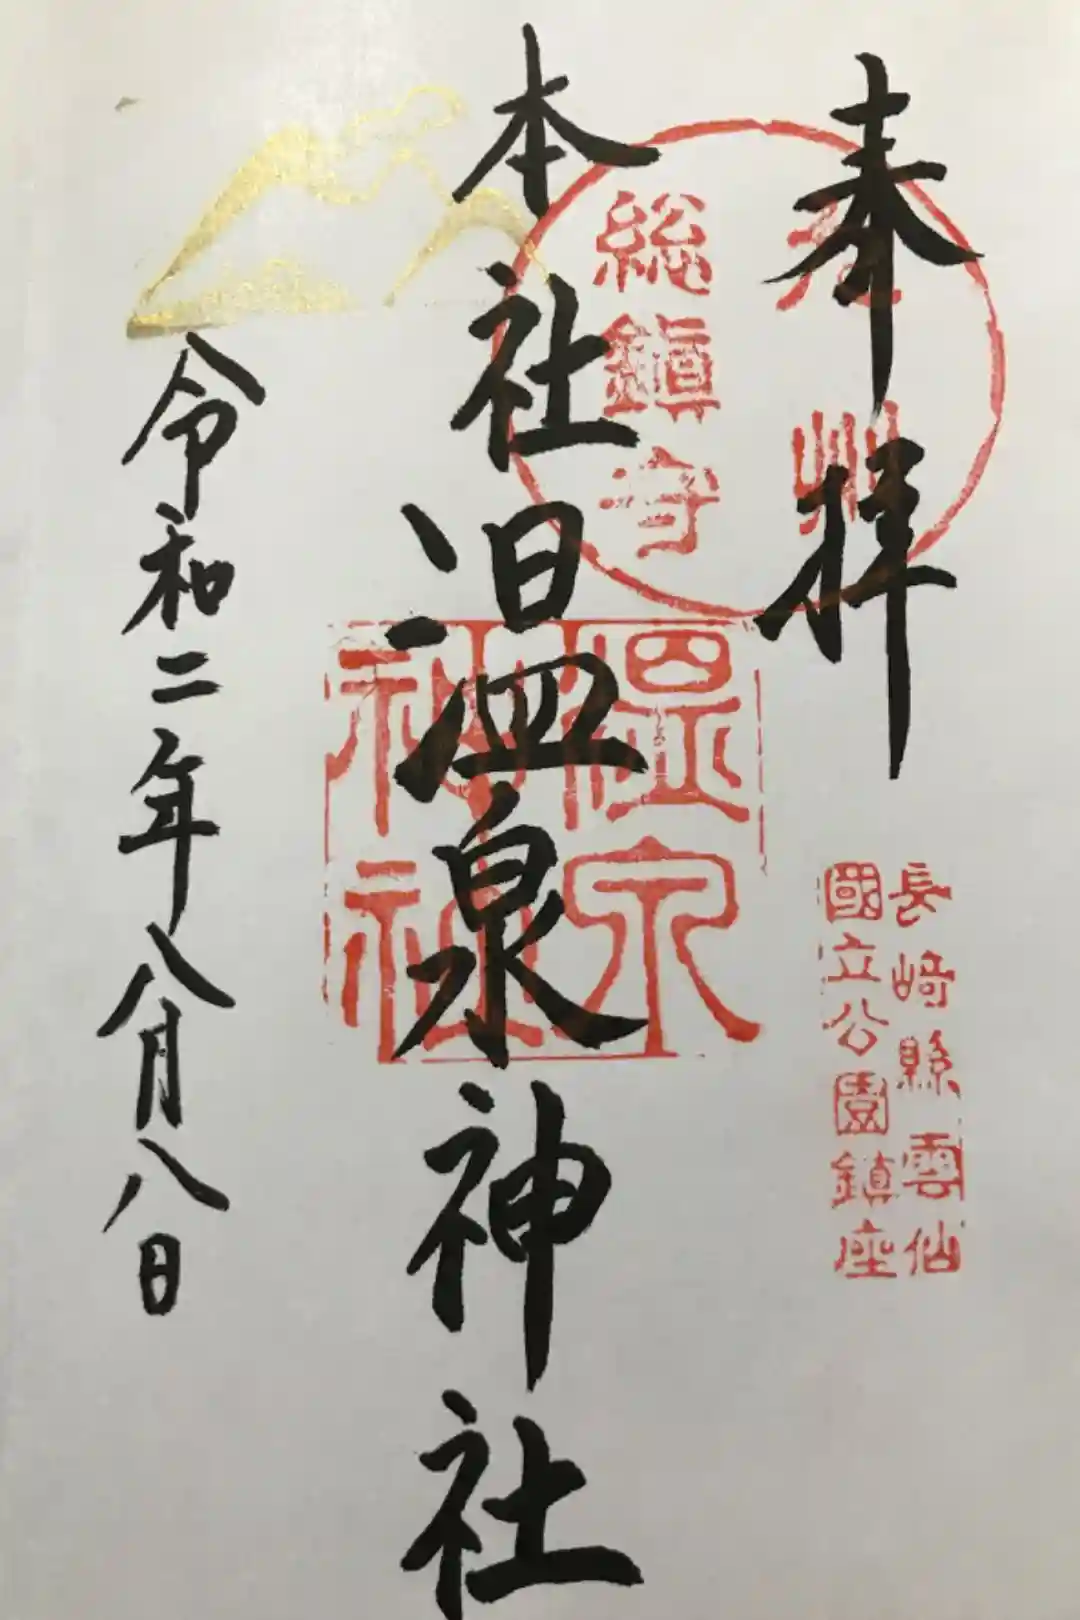 奉拝
九州
総鎮守
長崎縣雲仙
國立公園鎮座
本社温泉神社
温泉
神社
令和二年八月八日